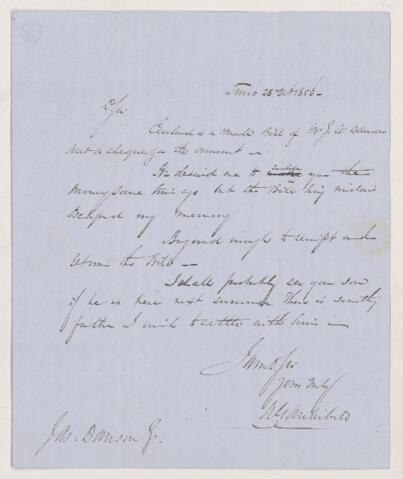 Truro 28 Oct 1856
D/Sir
Enclosed is a small Bill of Mr J. W. Dawson
and a cheque for the amount
He desired me to you the
money some time ago but the Bill being mislaid
escaped my memory
Be good enough to receipt and
return the Bill
I shall probably see your son
if he is here next summer There is something
further I wish to settle with him
I am D Sir
Yours truly
Archibald
Jas. Dawson Esq.